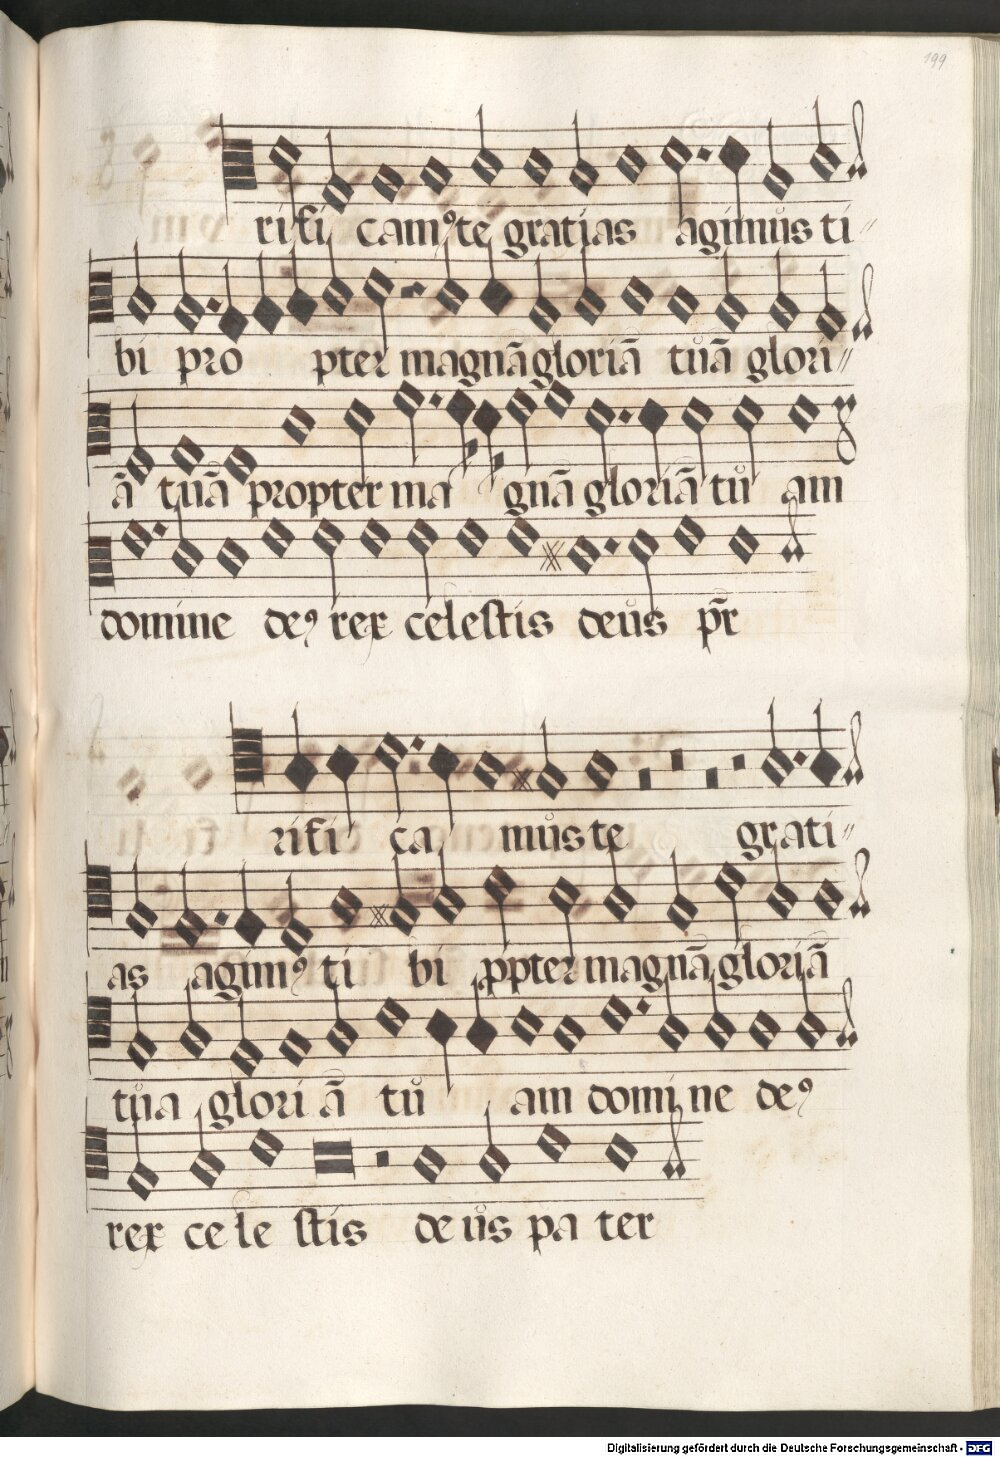 199
rifi cam⁹te gratias agimus ti〃
bi pro pter magnā gloriā tuā glori〃
ā tuā propter ma gnā gloriā tu am
domine de⁹ rex celestis deus pr̄
rifi ca mus te grati〃
as agim⁹ ti bi ꝓpter magnā gloriā
tua glori ā tu am domi ne de⁹
rex ce le stis de us pa ter
Digitalisierung gefördert durch die Deutsche Forschungsgemeinschaft - DFG